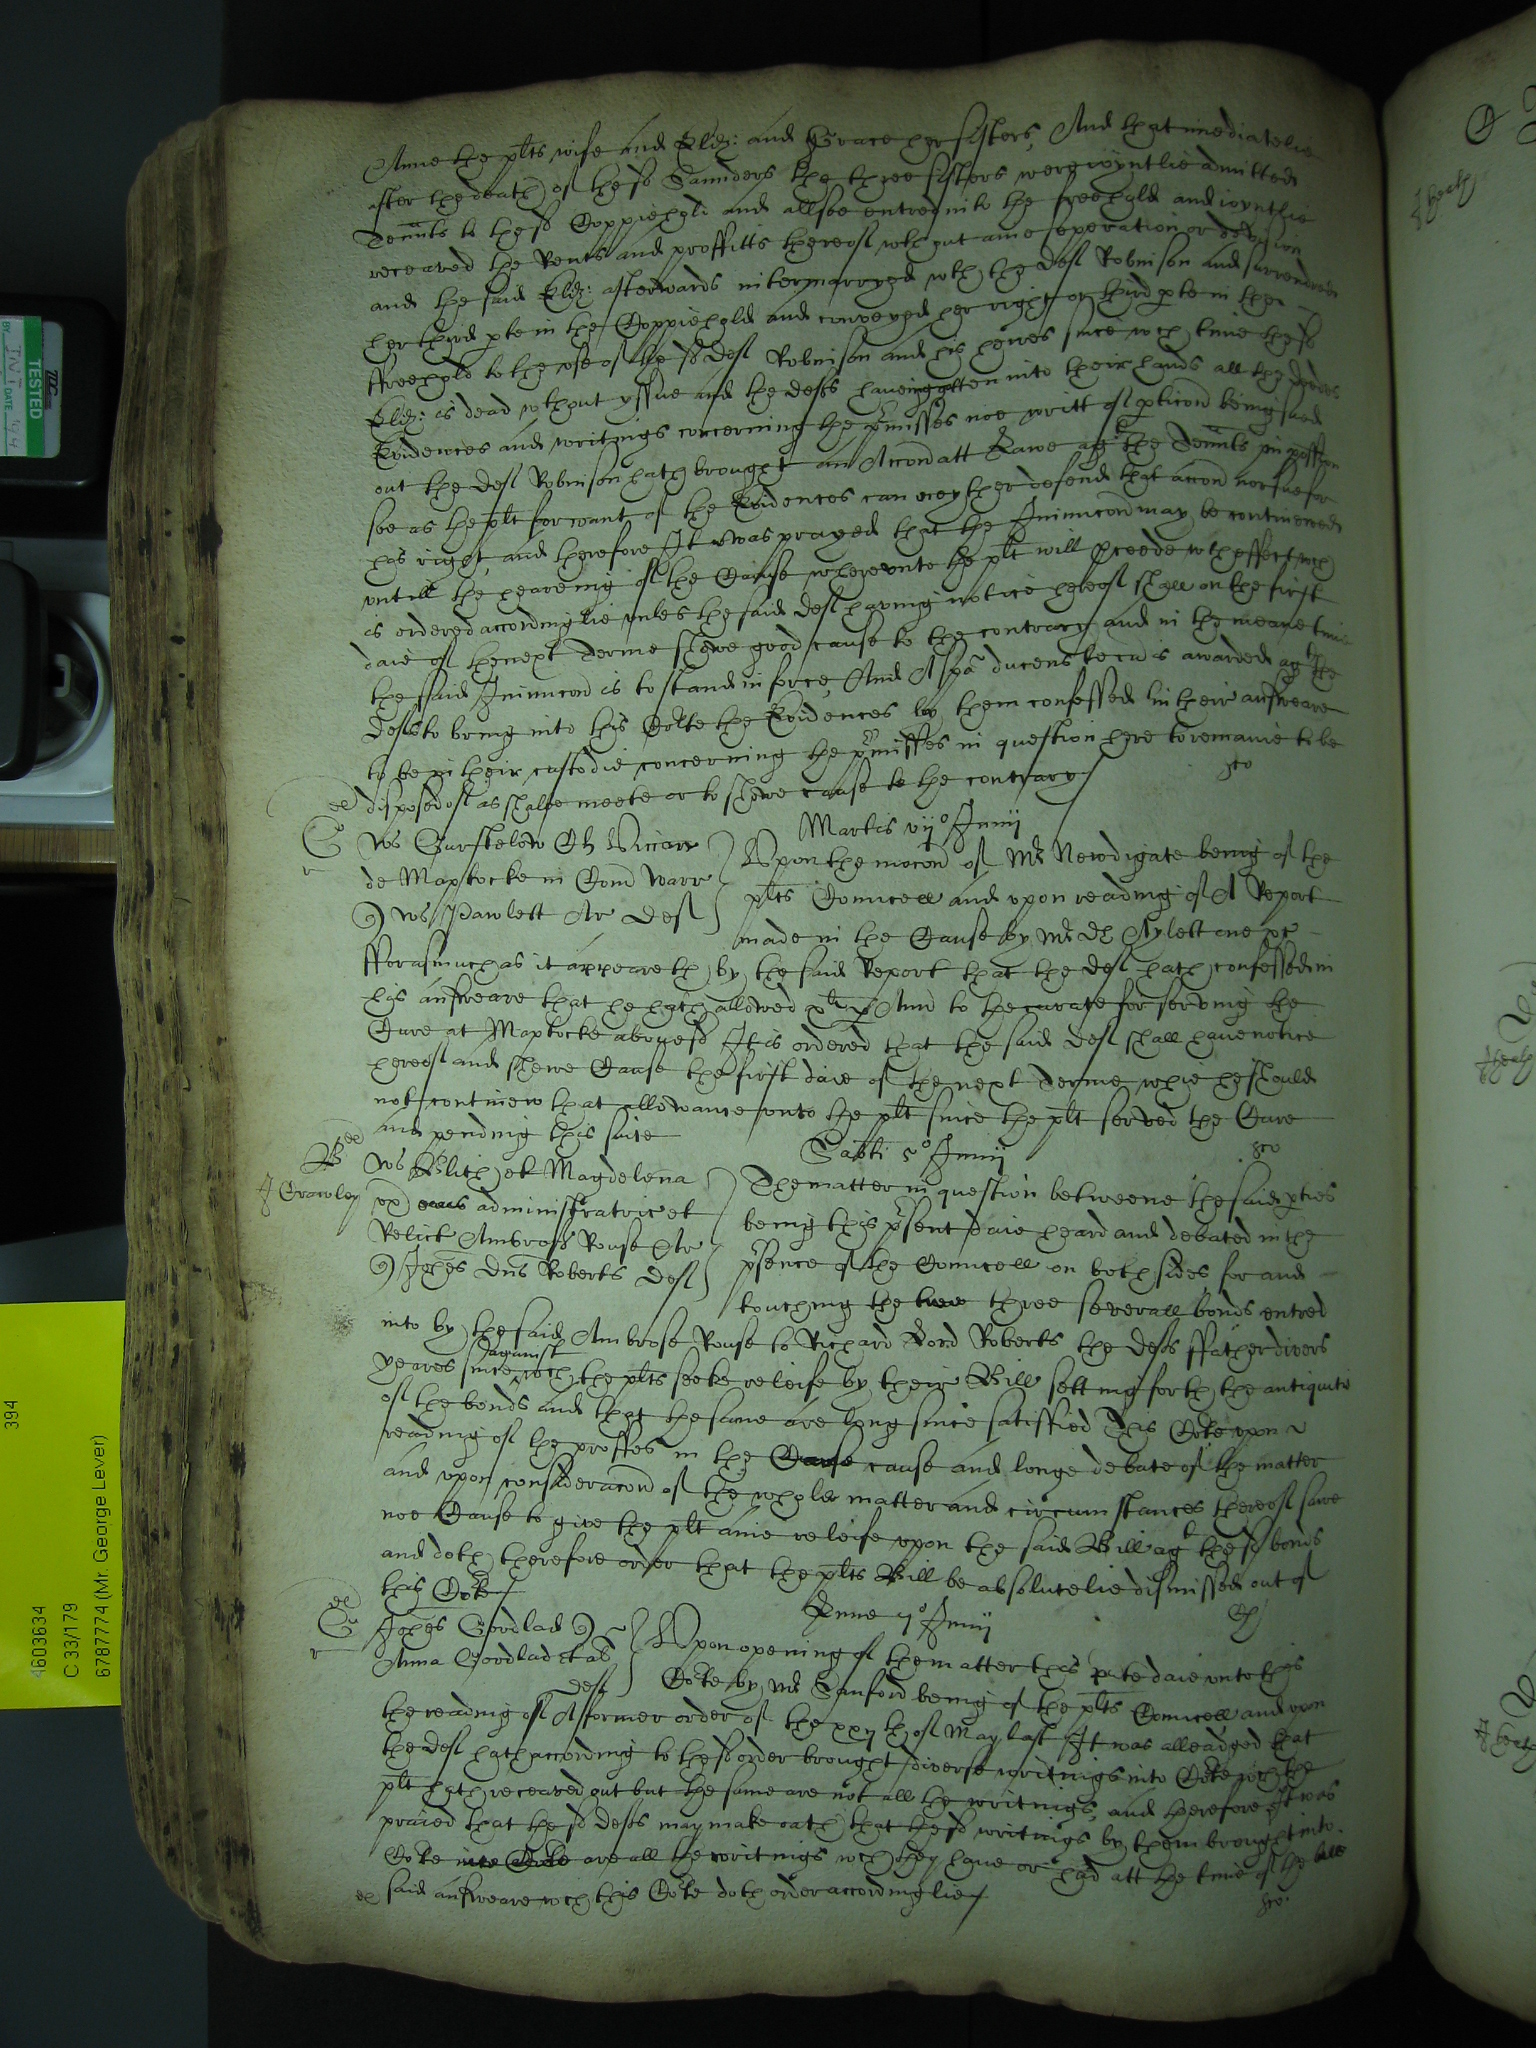 Anne the plts wife and Eliz: and Grace her sisters, And that imediatelie
after the death of the sd Saunders the three sisters were ioyntlie admitted
Tennts to the sd Coppiehold and allsoe entred into the freehold and ioyntlie
receaved the Rents and proffitts thereof wthout anie seperation or devision
and the said Eliz: afterwards intermarryed wth the deft Robinson and surrendred
her third pte in the Coppiehold and conveyed her right or third pte in the
ffreehold to the vse of the sd deft Robinson and his heires since wch time the sd
Eliz: is dead wthout yssue and the defts haueing gotten into their hands all the deedes
Evidences and writings concerning the prmisses noe writt of pticon being sued
out the deft Robinson hath brought an Accon att Lawe agt the Tennts in possession
soe as the plt for want of the Evidences can neyther defend that accon nor sue for
his right, and therefore It was prayed that the Iniunccon may be continewed
vntill the heareing of the Cause wherevnto the plt will pceede wth effect wch
is ordered accordinglie vnles the said deft having notice hereof shall on the first
daie of the next Terme shewe good cause to the contrary and in the meane time
the said Iniunccon is to stand in force, And A spa ducens tecu is awarded agt the
defts to bring into this Corte the Evidences by them confessed in their answeare
to be in their custodie concerning the prmisses in question here to remaine to be
disposed of as shalbe meete or to shewe cause to the contrary
Martis vijo Junij
Ws Gurstelow Cl Vicar
de Maxtocke in Com Warr
Ws Pawlett Ar deft
Vpon the mocon of Mr Newdigate being of the
plts Councell and vpon reading of A Report
made in the Cause by Mr Dr Aylett one &c
fforasmuch as it appeareth by the said Report that the deft hath confessed in
his answeare that he hath allowed xli p Ann to the curate for serving the
Cure at Maxtocke abouesd It is ordered that the said deft shall haue notice
hereof and shewe Cause the first daie of the next Terme whie he should
not continew that allowance vnto the plt since the plt served the Cure
and pending this suite
Sabti 5o Junij
J Crawley
Ws Blith et Magdelena
vx eius administratric et
Relict Ambross Rouse Ar
Johes Dns Roberts deft
The matter in question betweene the said pties
being this prsent daie heard and debated in the
prsence of the Councell on both sides for and
touching the three severall bonds entred
into by the said Ambrose Rouse to Richard Lord Roberts the defts ffather divers
yeares since against wch the plts seeke releife by their Bill setting forth the antiquitie
of the bonds and that the same are long since satisfied This Corte vpon
reading of the proffes in the Cause cause and longe debate of the matter
and vpon consideracon of the whole matter and circumstances thereof sawe
noe Cause to give the plt anie releife vpon the said Bill agt the sd bonds
and doth therefore order that the plts Bill be absolutelie dismissed out of
this Corte
Lune 7o Junij
Johes Godlad
Anna Godlad et al
deft
Vpon opening of the matter this prte daie vnto this
Corte by Mr Sanford being of the plts Councell and vpon
the reading of A former order of the xxijth of May last It was alleadged that
the deft hath according to the sd order brought diverse writings into Corte wch the
plt hath receaved out but the same are not all the writings, and therefore It was
praied that the sd defts may make oath that the sd writings by them brought into
Corte into Corte are all the writings wch they haue or had att the time of the
said answeare wch this Corte doth order accordinglie
TESTED
BY
DATE
394
4603634
C 33/179
6787774 (Mr. George Lever)